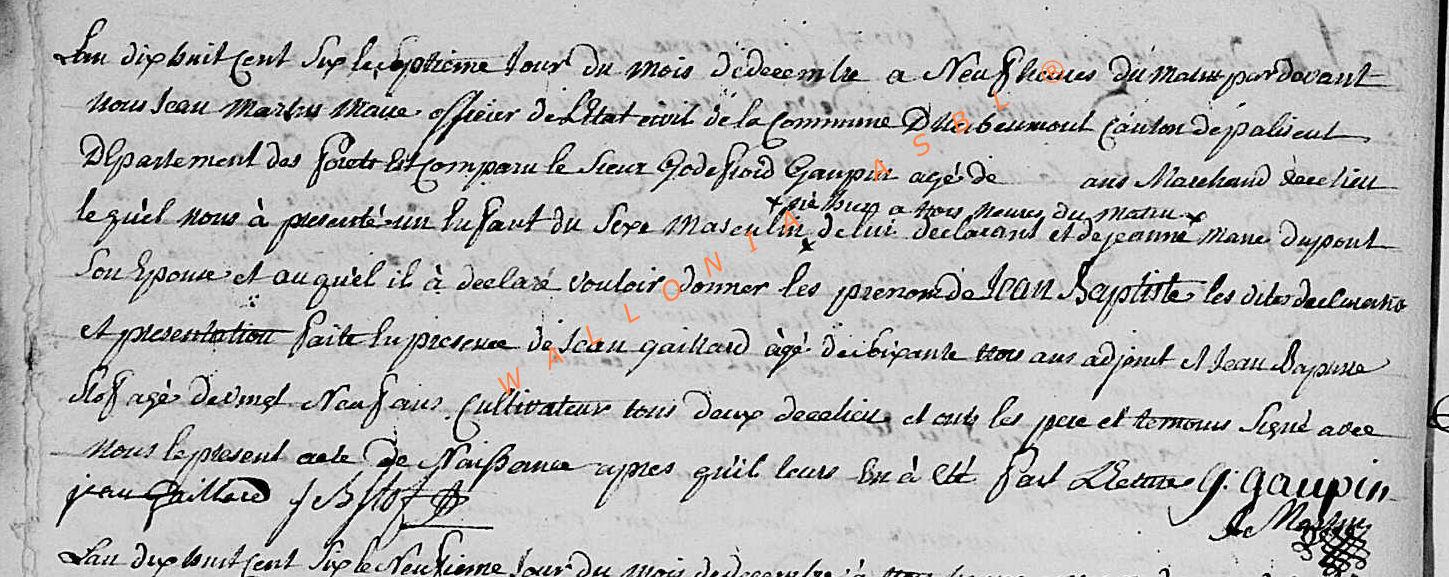 Lan dix huit Cent Six le septieme Jour du mois dedecembre a Neuf heures du Matin par devant
nous Jean Martin maire officier de LEtat civil de la Commune Dherbeumont Canton de paliseul
DEpartement des forets Est Comparu le Sieur Godefroid Gaupin agé de ans Marchand decelieu
+ né hier a trois heures du matin +
lequel nous à presenté un Enfant du Sexe Masculin de lui declarant et de jeanne marie dupont
Son Epouse et auquel il à declaré vouloir donner les prenom de Jean Baptiste les dites declaration
et presentation faite En presence de Jean gaillard agé de soixante trois ans adjoint et Jean Baptiste
Slof agé de vingt Neuf ans Cultivateur tous deux decelieu et onts les pere et temoins Signé avec
nous le present acte de Naissance apres quil leurs En à Eté fait Lecture G. gaupin
jean Gaillard J B Slof
J Martin
Lan dix huit Cent Six le Neufieme Jour du mois dedecembre à
WALLONIA ASBL ®